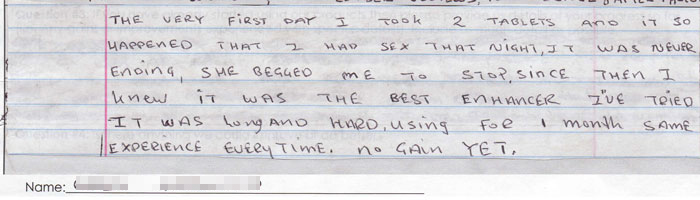 THE VERY FIRST DAY I TOOK 2 TABLETS AND IT SO
HAPPENED THAT I HAD SEX THAT NIGHT, IT WAS NEVER
ENDING, SHE BEGGED ME TO STOP, SINCE THEN I
KNEW IT WAS THE BEST ENHANCER I'VE TRIED
IT WAS LONG AND HARD, USING FOR 1 MONTH SAME
EXPERIENCE EVERYTIME. NO GAIN YET.
Name: